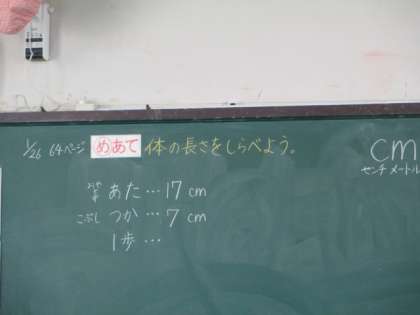 1/26 64ページ めあて 体の長さをしらべよう。
cm
センチメートル
あた…17cm
こぶし つか…7cm
1歩…